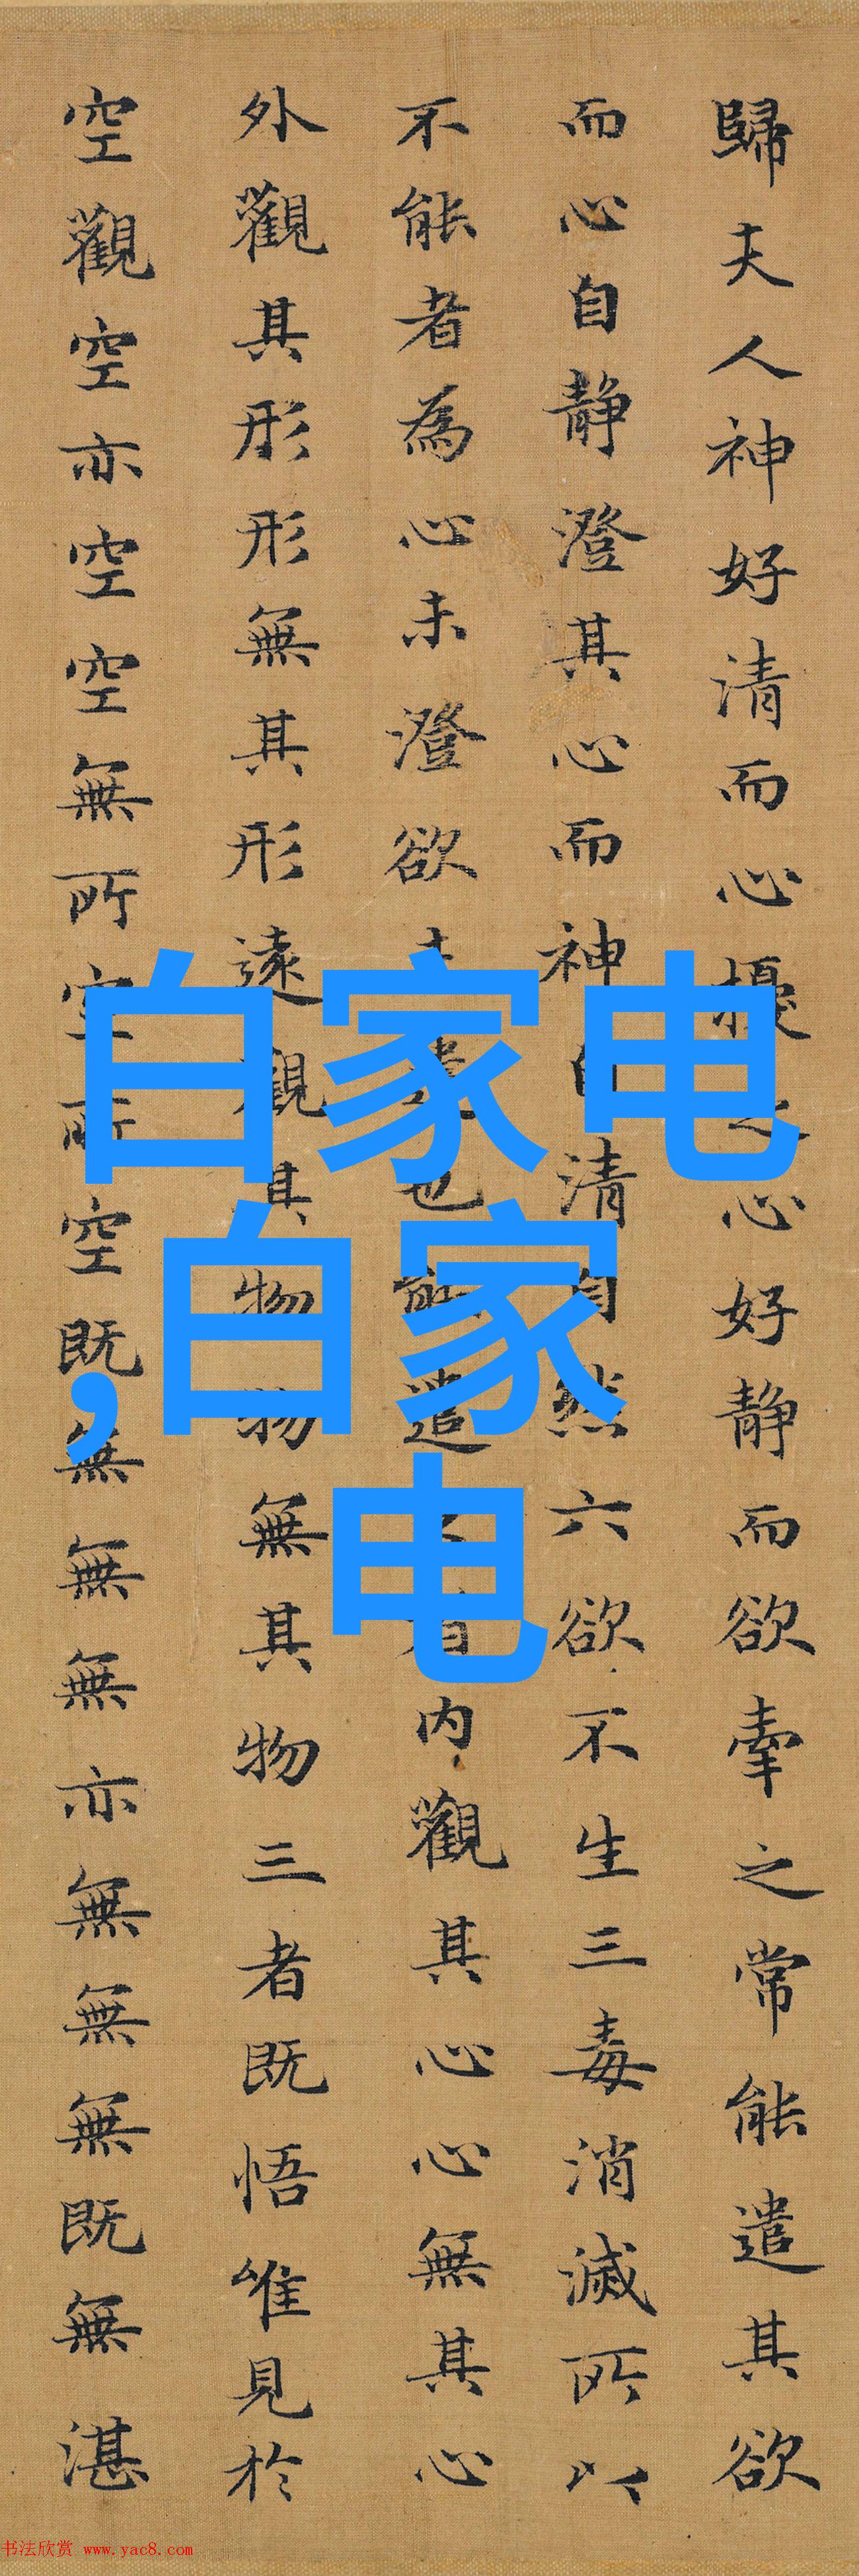 歸夫人神好清而心擾之心好静而欲牽之常能遣其欲
而心自静澄其心而神自清自然六欲不生三毒消滅所以
不能者為心未澄欲未遣也能遣之者内觀其心心無其心
外觀其形形無其形遠觀其物物無其物三者既悟唯見於
空觀空亦空空無所空所空既無無無亦無無無既無湛
白家电
,白家
电
书法欣赏 www.yac8.com